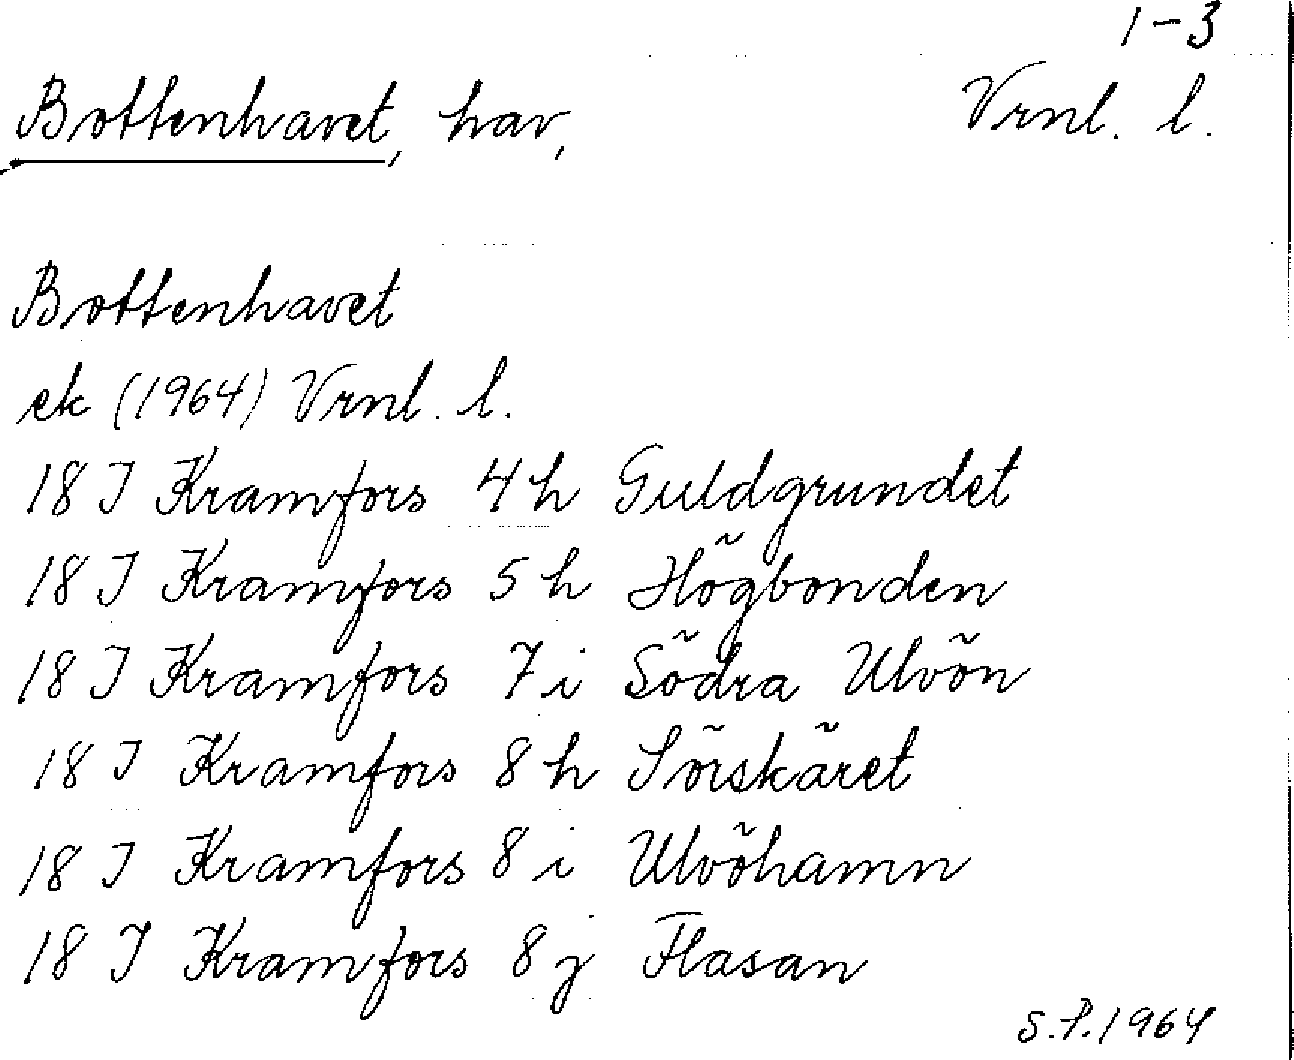 1-3
Bottenhavet, hav, Vrnl. l.
Bottenhavet
ek (1964) Vrnl. l.
18 I Kramfors 4 h Guldgrundet
18 I Kramfors 5 h Högbonden
18 I Kramfors 7 i Södra Ulvön
18 I Kramfors 8 h Sörskäret
18 I Kramfors 8 i Ulvöhamn
18 I Kramfors 8 j Flasan
S.P. 1964